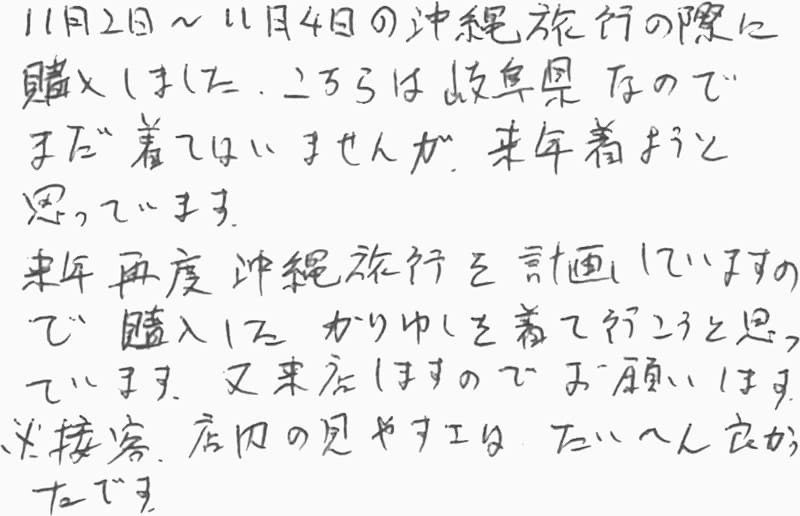 11月2日〜11月4日の沖縄旅行の際に
購入しました、こちらは岐阜県なので
まだ着てはいませんが、来年着ようと
思っています。
来年再度沖縄旅行を計画していますの
で購入したかりゆしを着て行こうと思っ
ています。又来店しますのでお願いします。
※接客、店内の見やすさは たいへん良かっ
たです。